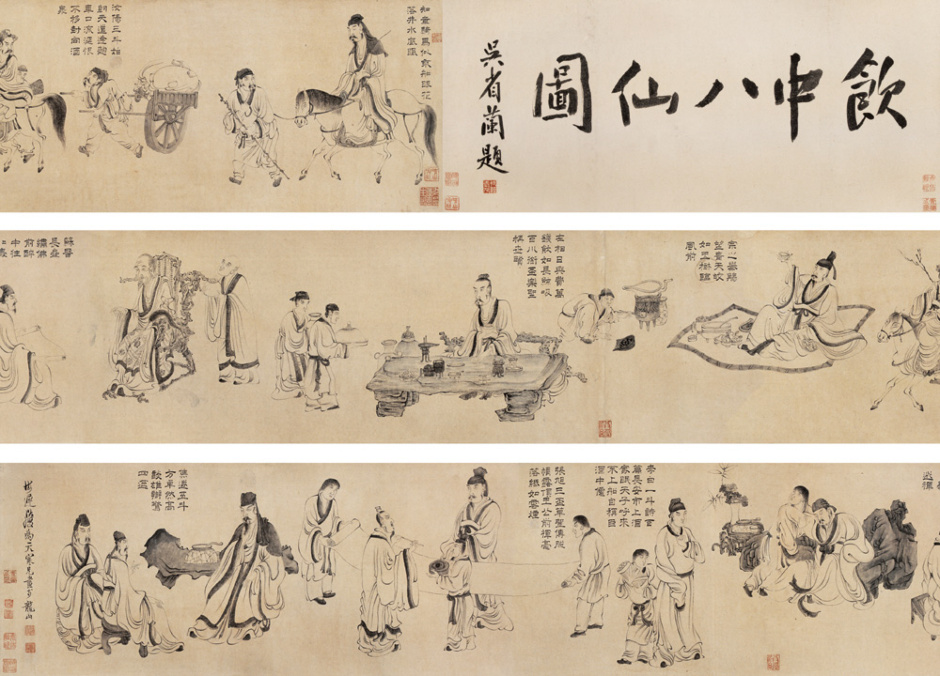 飲中八仙圖
吳省蘭題
知章騎馬似乘船眼花
落井水底眠
汝陽三斗始
朝天道逢麴
車口流涎恨
不移封向酒
泉
宗之舉觴
望青天皎
如玉樹臨
風前
左相日興費萬
錢飲如長鯨吸
百川銜盃樂聖
稱世賢
蘇晉
長齋
繡佛
前醉
中往
往愛
逃禪
李白一斗詩百
篇長安市上酒
家眠天子呼來
不上船自稱臣
酒中僊
張旭三盃草聖傳脫
帽露頂王公前揮毫
落紙如雲煙
焦遂五斗
方卓然高
談雄辯驚
四筵